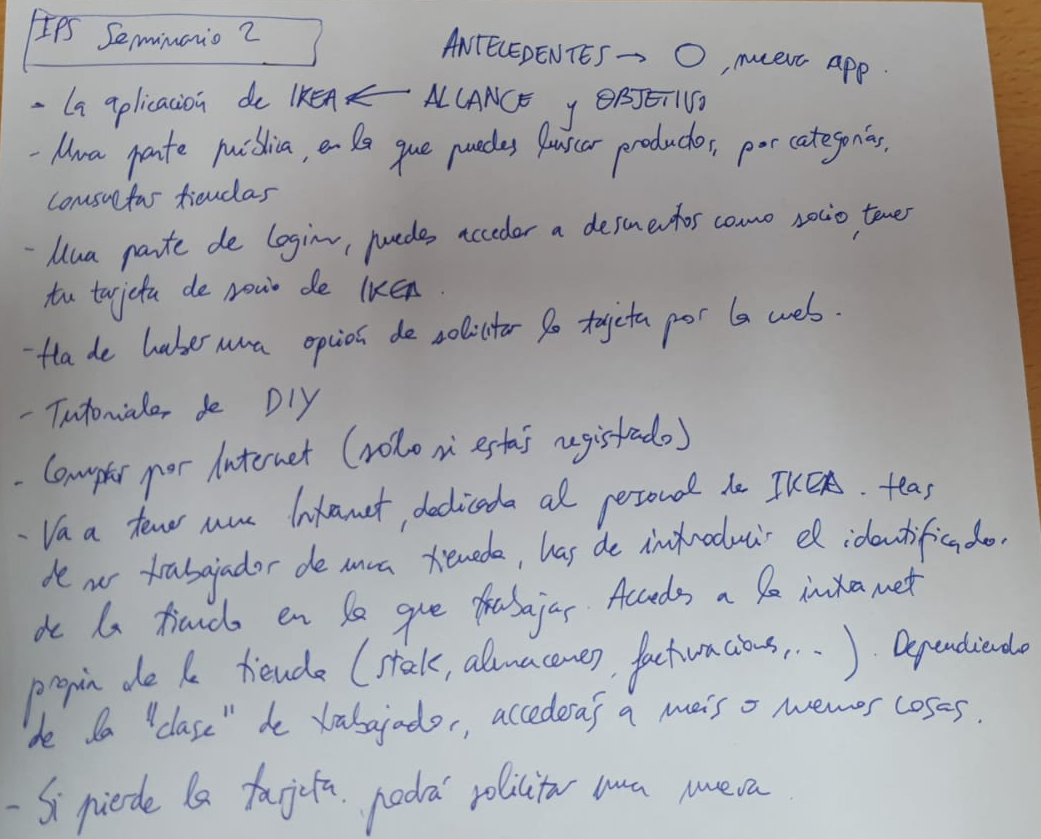 IPS Seminario 2
ANTECEDENTES → O, nueva app.
- La aplicación de IKEA ← ALCANCE y OBJETIVO
- Una parte pública, en la que puedes buscar productos, por categorías,
consultar tiendas
- Una parte de login, puedes acceder a descuentos como socio, tener
tu tarjeta de socio de IKEA.
- Ha de haber una opción de solicitar la tarjeta por la web.
- Tutoriales de DIY
- Comprar por Internet (sólo si estás registrado)
- Va a tener una Intranet, dedicada al personal de IKEA. Has
de ser trabajador de una tienda, has de introducir el identificador
de la tienda en la que trabajas. Accedes a la intranet
propia de la tienda (stak, almacenes, facturacions,...). Dependiendo
de la "clase" de trabajador, accederás a más o menos cosas.
- Si pierde la tarjeta, podrá solicitar una nueva.